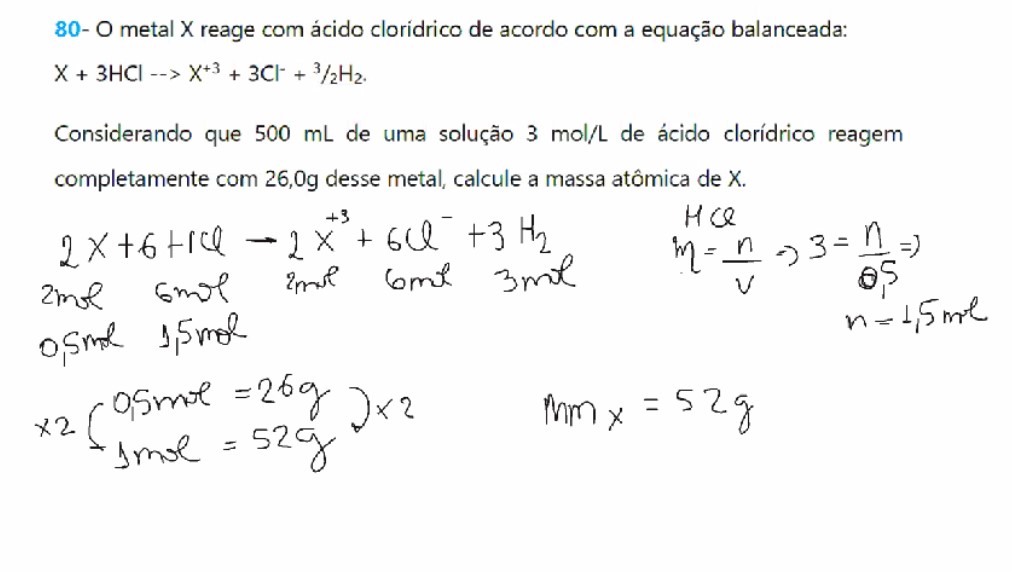 80- O metal X reage com ácido clorídrico de acordo com a equação balanceada:
X + 3HCl --> X⁺³ + 3Cl⁻ + ³/₂H₂.
Considerando que 500 mL de uma solução 3 mol/L de ácido clorídrico reagem
completamente com 26,0g desse metal, calcule a massa atômica de X.
HCl
2X + 6HCl → 2X⁺³ + 6Cl⁻ + 3H₂
M = n/V => 3 = n/0,5 =>
2mol 6mol 2mol 6mol 3mol
n = 1,5mol
0,5mol 1,5mol
x2 ( 0,5mol = 26g ) x2
1mol = 52g
MMx = 52g